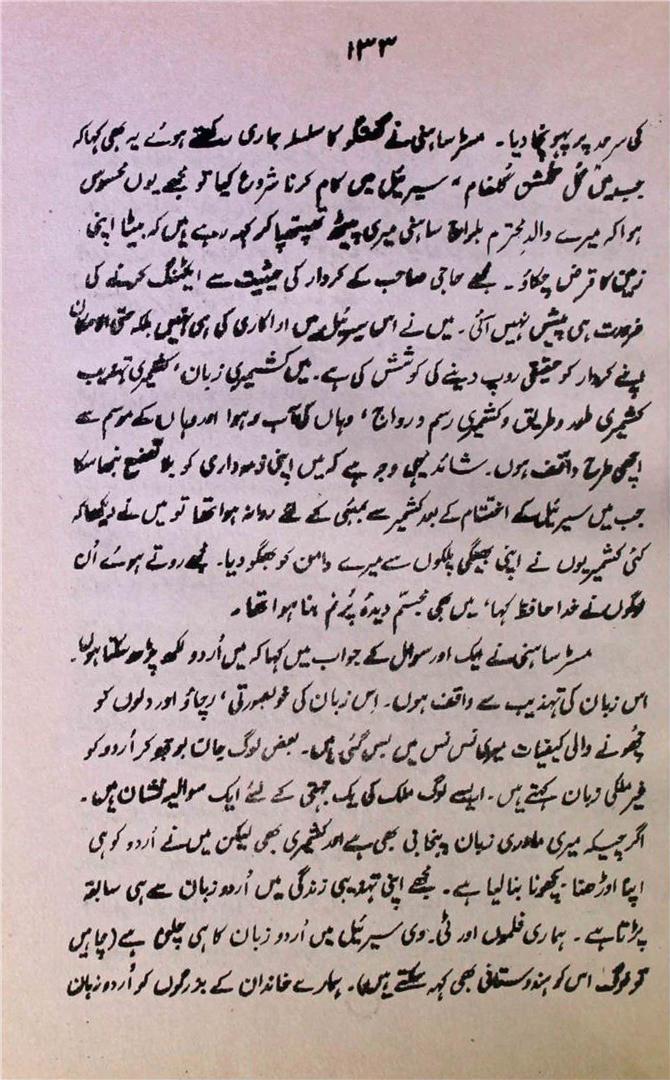 ۱۳۳
کی سرحد پر پہونچا دیا۔ مسٹر ساہنی نے گفتگو کا سلسلہ جاری رکھتے ہوئے یہ بھی کہا کہ
جب میں گل گلشن گلفام، سیرئیل میں کام کرنا شروع کیا تو مجھے یوں محسوس
ہوا کہ میرے والدِ محترم بلراج ساہنی میری پیٹھ تھپتھپا کر کہہ رہے ہیں کہ بیٹا اپنی
زمین کا قرض چکاؤ۔ مجھے حاجی صاحب کے کردار کی حیثیت سے ایکٹنگ کرنے کی
ضرورت ہی پیش نہیں آئی۔ میں نے اس سیرئیل میں اداکاری کی ہی نہیں بلکہ حتی الامکان
اپنے کردار کو حقیقی روپ دینے کی کوشش کی ہے۔ میں کشمیری زبان، کشمیری تہذیب
کشمیری طور و طریق و کشمیری رسم و رواج، وہاں کی آب و ہوا اور وہاں کے موسم سے
اچھی طرح واقف ہوں۔ شائد یہی وجہ ہے کہ میں اپنی ذمہ داری کو بلا تصنع نبھا سکا
جب میں سیرئیل کے اختتام کے بعد کشمیر سے بمبئی کے لئے روانہ ہوا تھا تو میں نے دیکھا کہ
کئی کشمیریوں نے اپنی بھیگی پلکوں سے میرے دامن کو بھگو دیا۔ مجھے روتے ہوئے اُن
لوگوں نے خدا حافظ کہا، میں بھی مجسّم دیدۂ پُرنم بنا ہوا تھا۔
مسٹر ساہنی نے ایک اور سوال کے جواب میں کہا کہ میں اُردو لکھ پڑھ سکتا ہوں۔
اس زبان کی تہذیب سے واقف ہوں۔ اِس زبان کی خوبصورتی، رچاؤ اور دلوں کو
چھُونے والی کیفیات میری نس نس میں بس گئی ہیں۔ بعض لوگ جان بوجھ کر اُردو کو
غیر ملکی زبان کہتے ہیں۔ ایسے لوگ ملک کی یک جہتی کے لئے ایک سوالیہ نشان ہیں۔
اگرچیکہ میری مادری زبان پنجابی بھی ہے اور کشمیری بھی لیکن میں نے اُردو کو ہی
اپنا اوڑھنا بچھونا بنا لیا ہے۔ مجھے اپنی تہذیبی زندگی میں اُردو زبان سے ہی سابقہ
پڑتا ہے۔ ہماری فلموں اور ٹی۔وی سیرئیل میں اُردو زبان کا ہی چلن ہے (چاہیں
تو لوگ اس کو ہندوستانی بھی کہہ سکتے ہیں)۔ ہمارے خاندان کے بزرگوں کو اُردو زبان